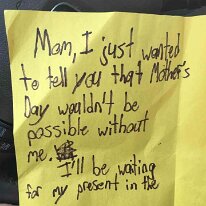 Mom, I just wanted
to tell you that Mother's
Day wouldn't be
possible without
me.
I'll be waiting
for my present in the